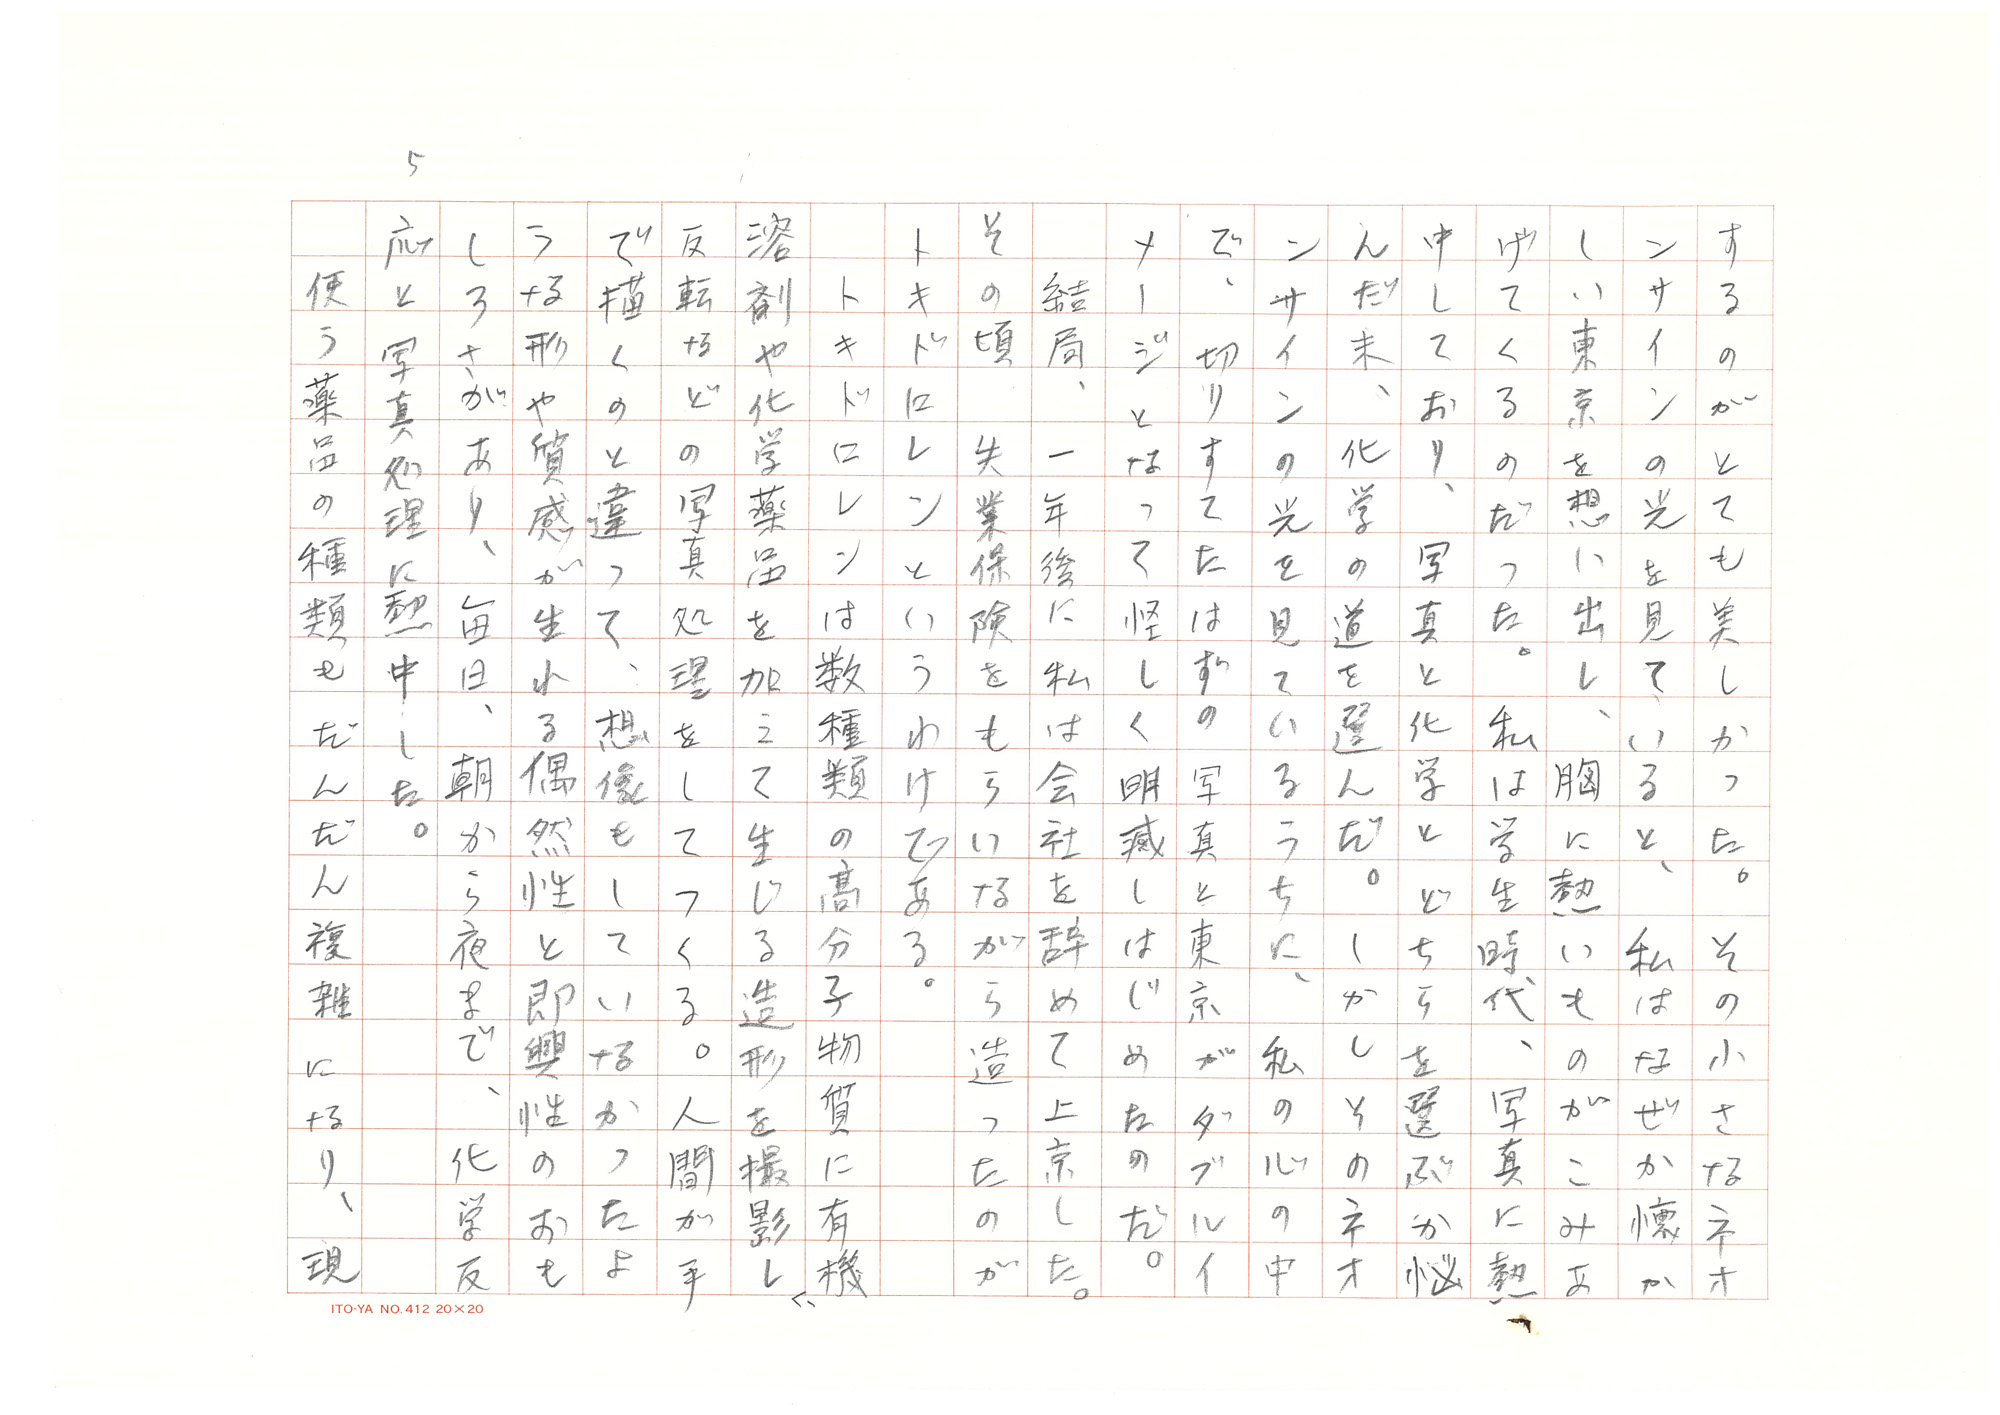 5
するのがとても美しかった。その小さなネオ
ンサインの光を見ていると、私はなぜか懐か
しい東京を想い出し、胸に熱いものがこみあ
げてくるのだった。私は学生時代、写真に熱
中しており、写真と化学とどちらを選ぶか悩
んだ末、化学の道を選んだ。しかしそのネオ
ンサインの光を見ているうちに、私の心の中
で、切りすてたはずの写真と東京がダブルイ
メージとなって怪しく明滅しはじめたのだ。
結局、一年後に私は会社を辞めて上京した。
その頃 失業保険をもらいながら造ったのが
トキドロレンというわけである。
トキドロレンは数種類の高分子物質に有機
溶剤や化学薬品を加えて生じる造形を撮影し、
反転などの写真処理をしてつくる。人間が手
で描くのと違って、想像もしていなかったよ
うな形や質感が生れる偶然性と即興性のおも
しろさがあり、毎日、朝から夜まで、化学反
応と写真処理に熱中した。
使う薬品の種類もだんだん複雑になり、現
ITO-YA NO.412 20×20